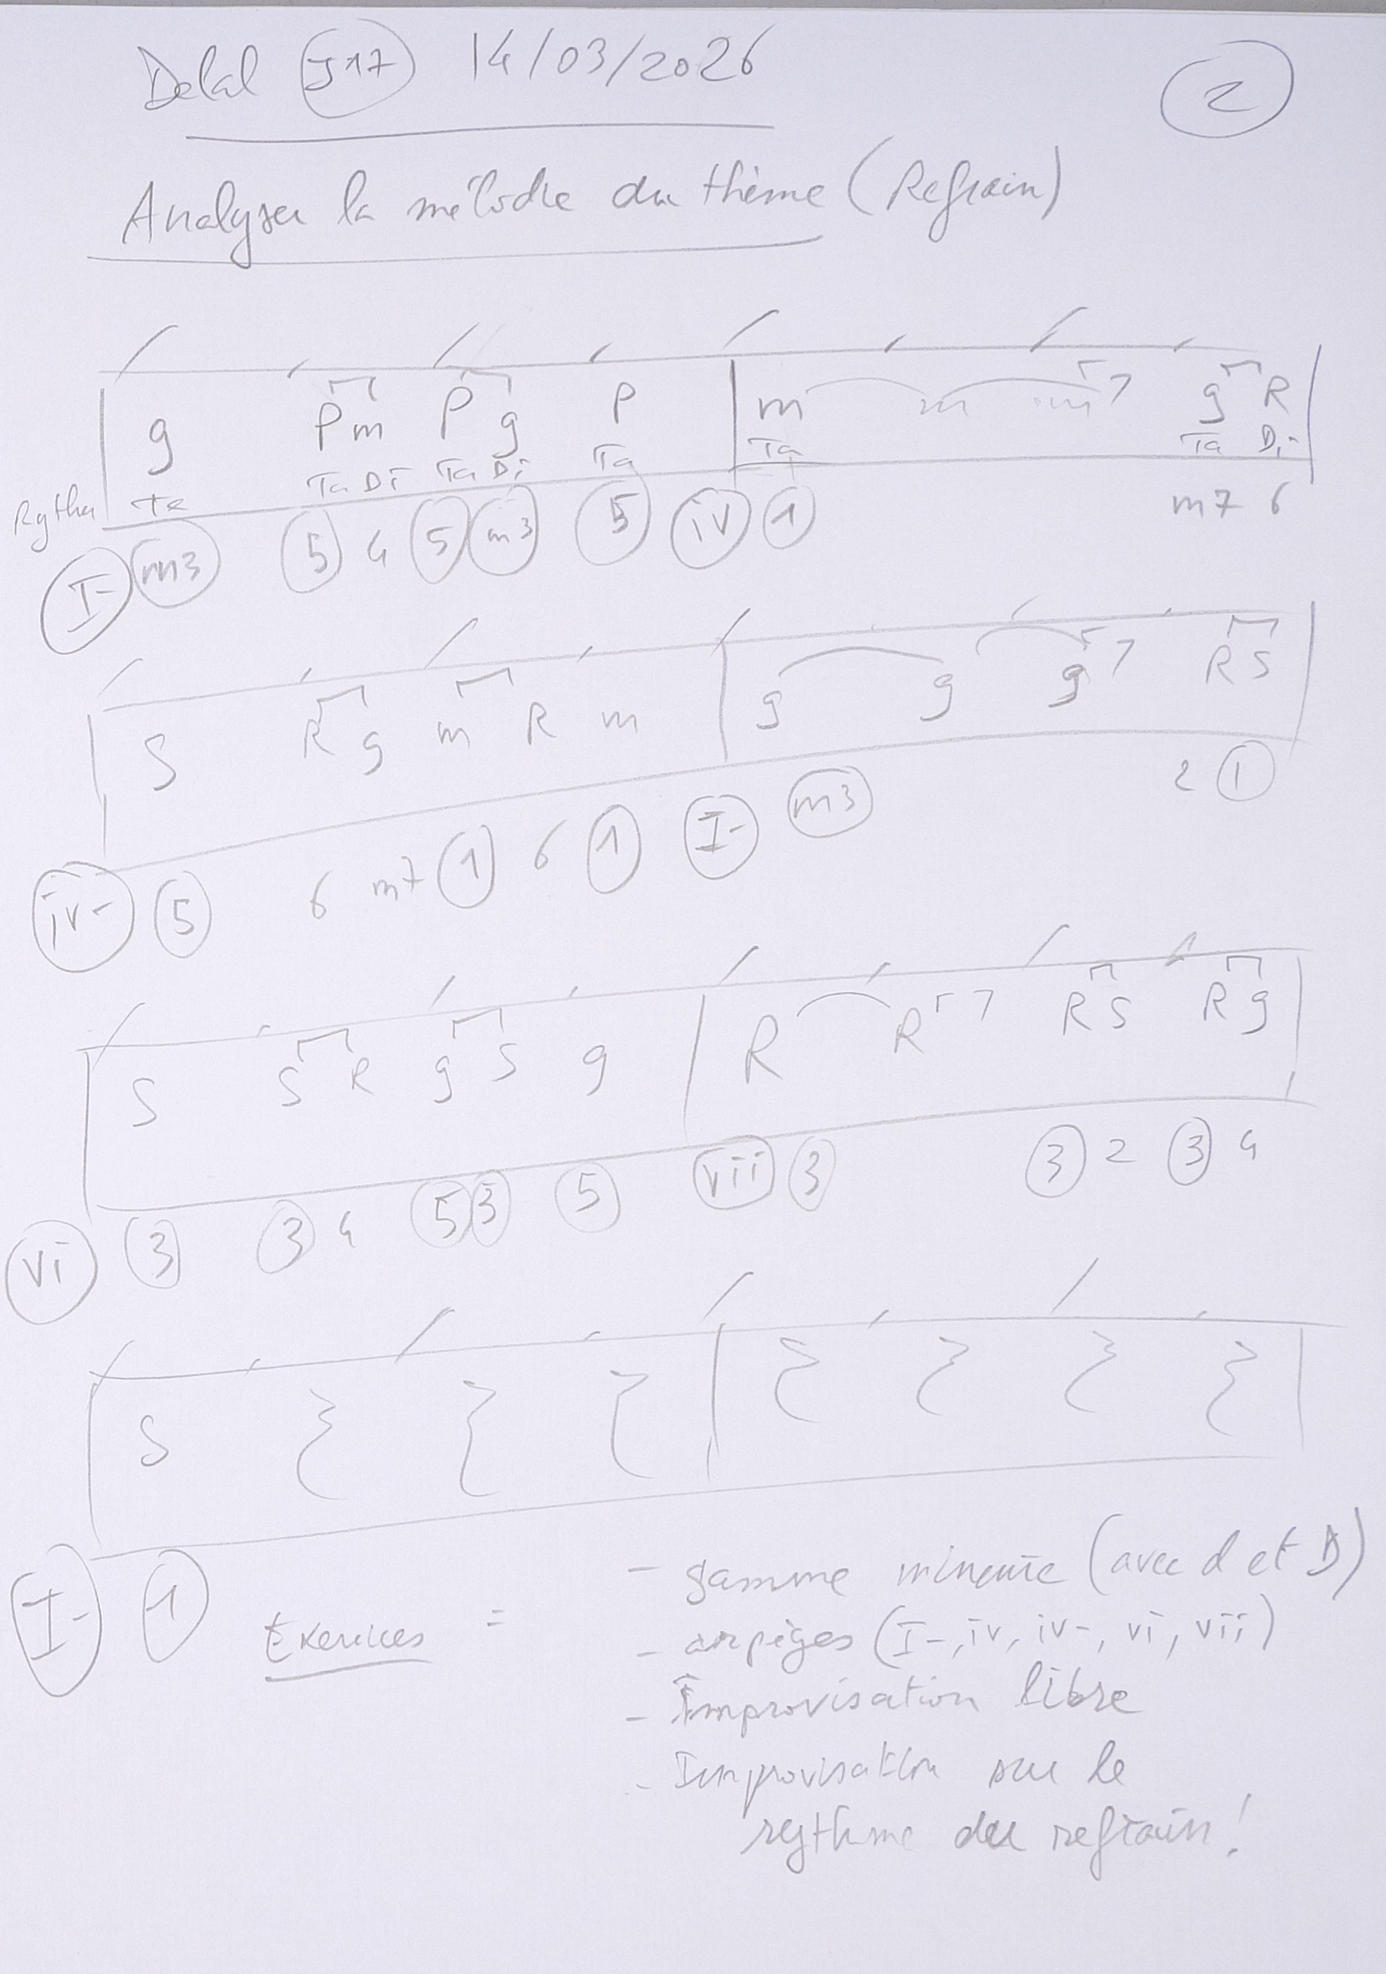 Delal J17 14/03/2026
2
Analyser la mélodie du thème (Refrain)
g P m P g P m m m 7 g R
Ta Ta Di Ta Di Ta Ta Ta Di
I- m3 5 4 5 m3 5 iv 1 m7 6
S R g m R m g g g 7 R S
iv- 5 6 m7 1 6 1 I- m3 2 1
S S R g S g R R 7 R S R g
vi 3 3 4 5 3 5 vii 3 3 2 3 4
S
I- 1
Exercices =
- gamme mineure (avec d et D)
- arpèges (I-, iv, iv-, vi, vii)
- Improvisation libre
- Improvisation sur le
rythme du refrain!